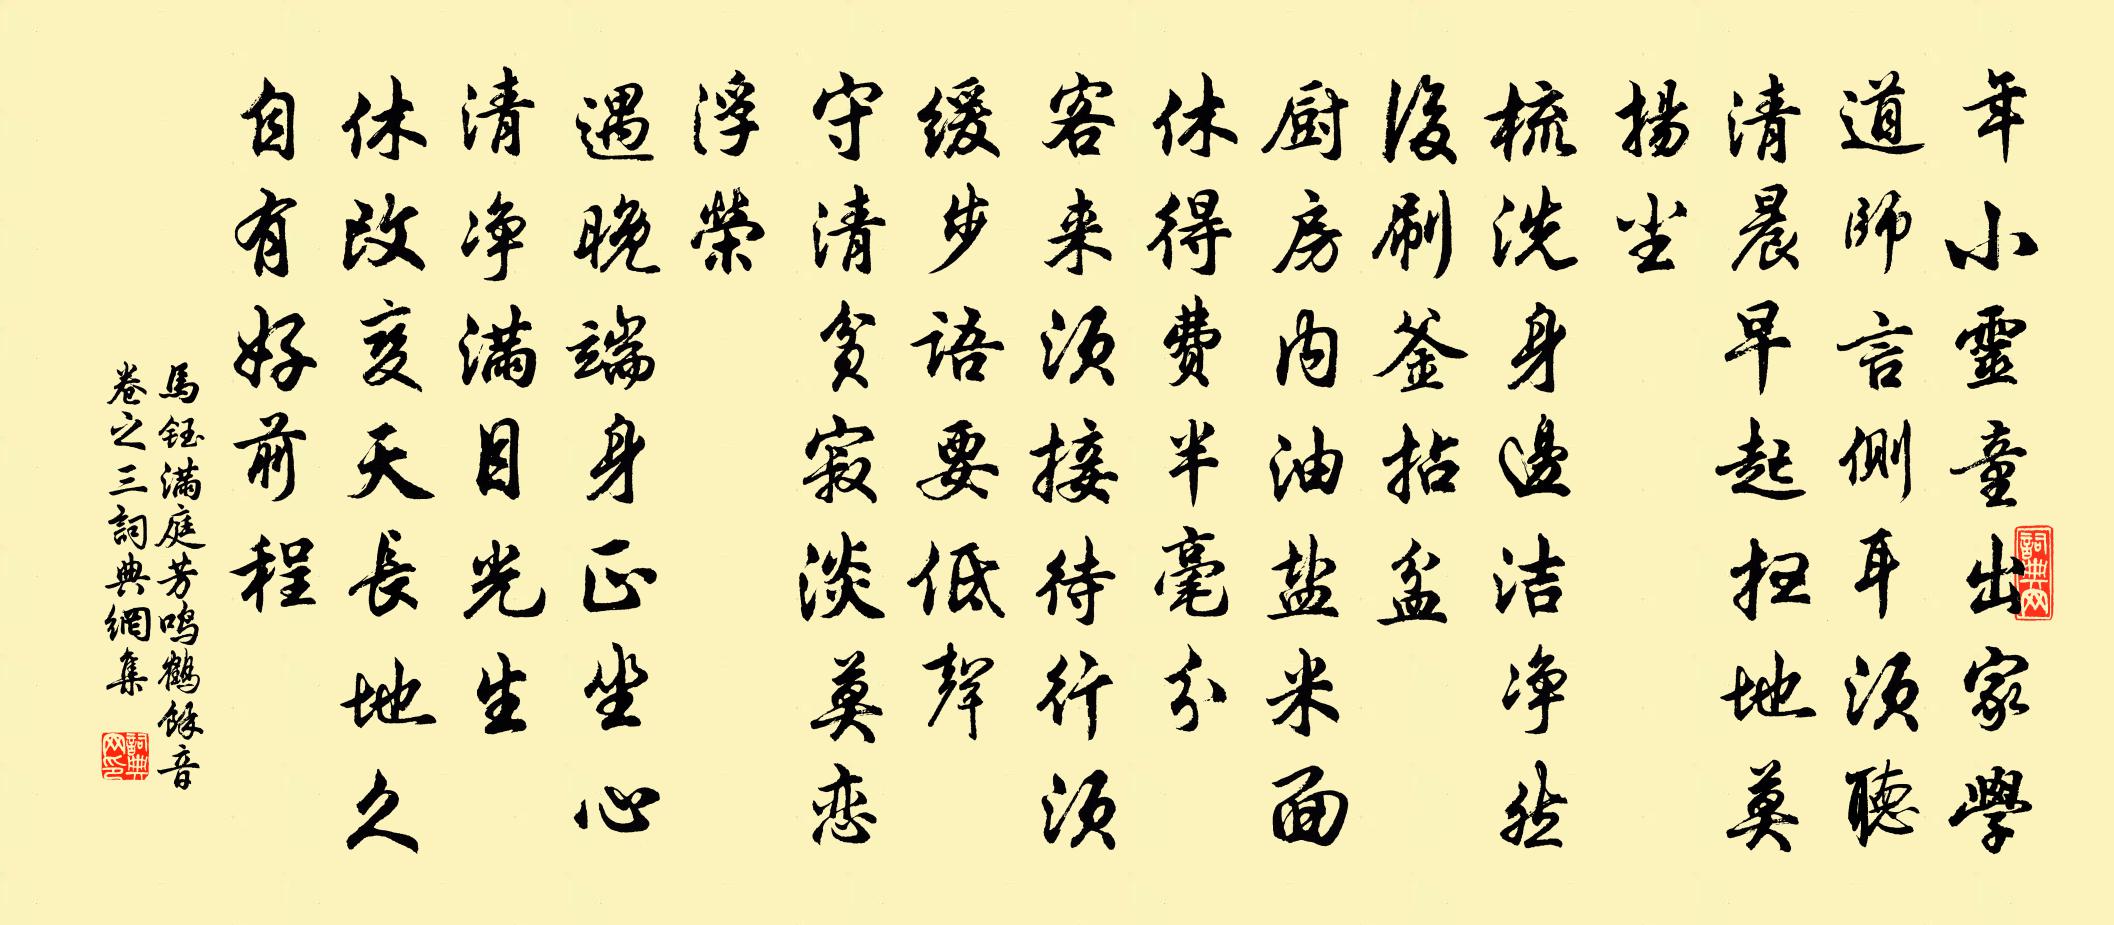 年小靈童出家學
道師言側耳須聽
清晨早起扫地莫
揚尘
梳洗身邊洁净然
後刷釜拈盆
厨房内油盐米面
休得費半毫分
客来须接待行须
缓步语要低聲
守清贫寂淡莫恋
浮榮
遇晚端身正坐心
清净满目光生
休改变天長地久
自有好前程
馬鈺满庭芳鸣鶴餘音
卷之三詞典網集
詞典网
詞典网印